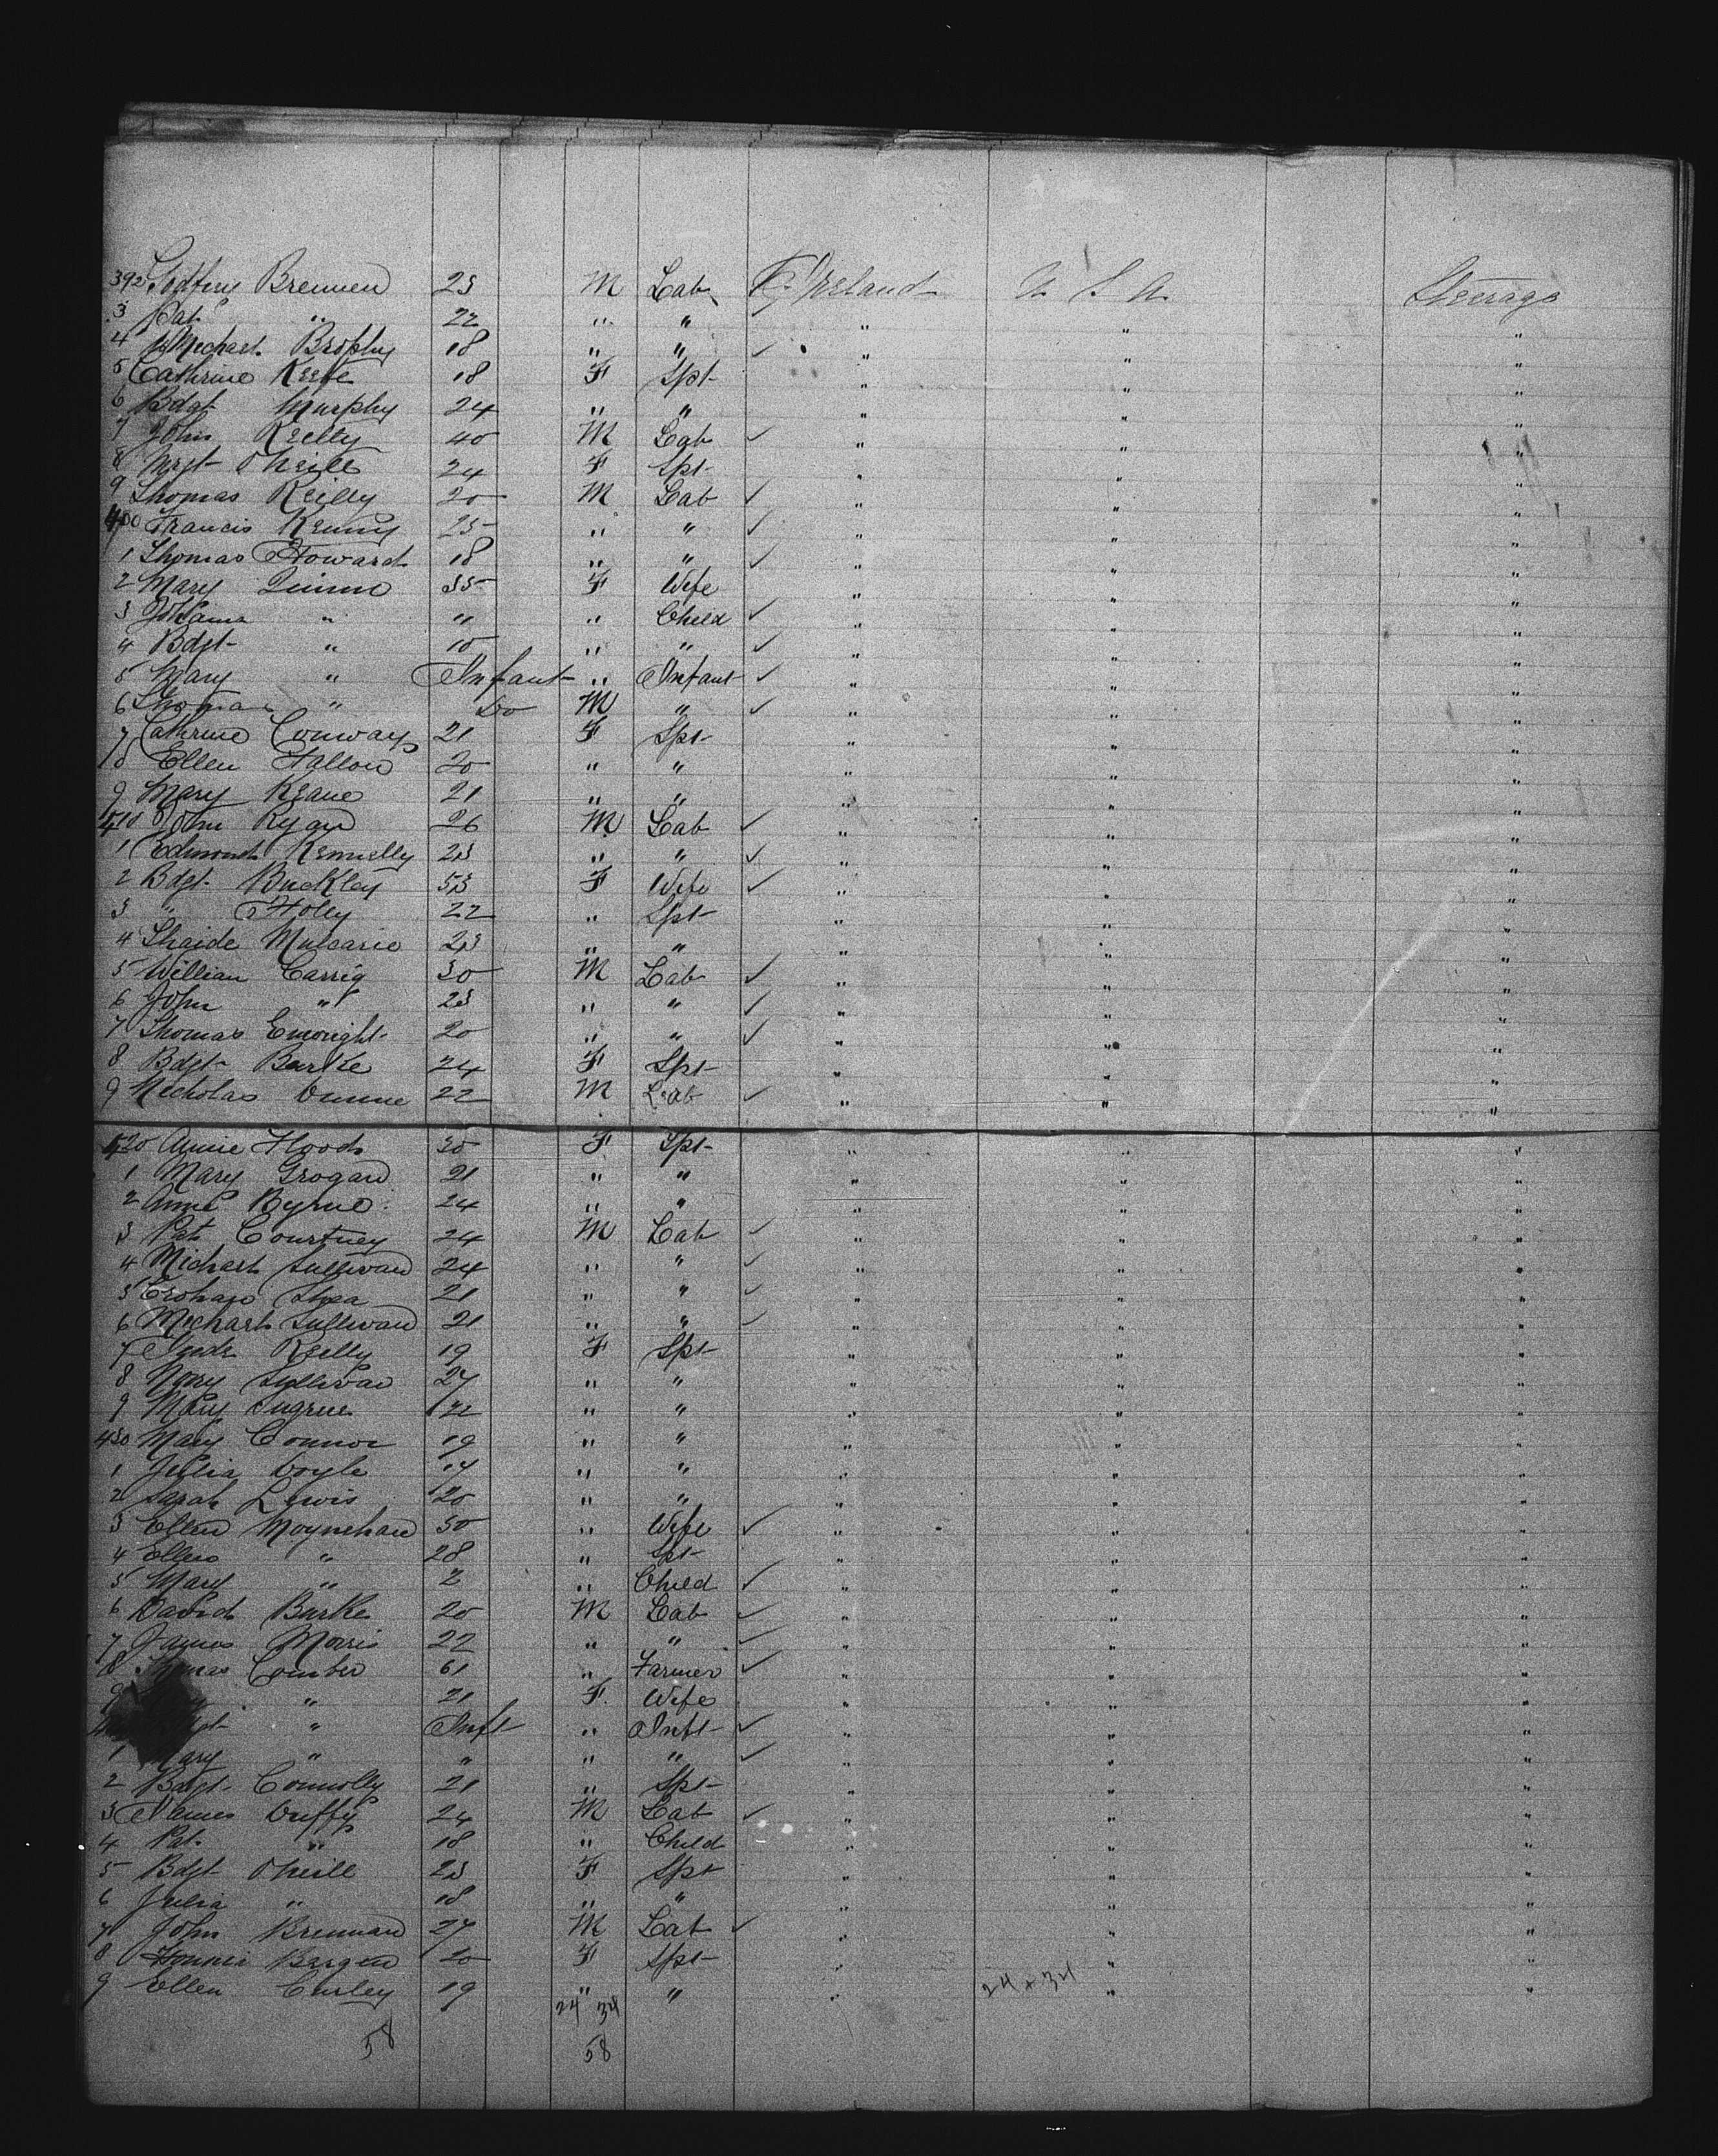 392 Godfrey Brennen 23 M Lab Ireland U S A Steerage
3 Pat " 22 " " " " "
4 Michael Brophy 18 " " ✓ " " "
5 Cathrine Keefe 18 F Spt " " "
6 Bdgt Murphy 24 " " " " "
7 John Reilly 40 M Lab ✓ " " "
8 Mrgt O'Neill 24 F Spt " " "
9 Thomas Reilly 20 M Lab ✓ " " "
400 Francis Kenny 25 " " ✓ " " "
1 Thomas Howard 18 " " ✓ " " "
2 Mary Quinn 35 F Wife " " "
3 Johanna " 11 " Child ✓ " " "
4 Bdgt " 10 " " ✓ " " "
5 Mary " Infant " Infant ✓ " " "
6 Thomas " Do M " ✓ " " "
7 Cathrine Conway 21 F Spt " " "
8 Ellen Fallon 20 " " " " "
9 Mary Keane 21 " " " " "
410 John Ryan 26 M Lab ✓ " " "
1 Edmond Kennelly 23 " " ✓ " " "
2 Bdgt Buckley 53 F Wife ✓ " " "
3 " Foley 22 " Spt " " "
4 Mulcarie 23 " " " " "
5 William Carrig 30 M Lab ✓ " " "
6 John " 23 " " ✓ " " "
7 Thomas Enright 20 " " ✓ " " "
8 Bdgt Burke 24 F Spt " " "
9 Nicholas Dunne 22 M Lab ✓ " " "
420 Annie Flood 30 F Spt " " "
1 Mary Grogan 21 " " " " "
2 Anne Byrne 24 " " " " "
3 Pat Courtney 24 M Lab ✓ " " "
4 Michael Sullivan 24 " " ✓ " " "
5 Crohan Shea 21 " " ✓ " " "
6 Michael Sullivan 21 " " ✓ " " "
7 Reilly 19 F Spt " " "
8 Mary Sullivan 27 " " " " "
9 Mary Sugrue 22 " " " " "
430 Mary Connor 19 " " " " "
1 Julia Doyle 17 " " " " "
2 Sarah Lewis 20 " " " " "
3 Ellen Moynehan 50 " Wife ✓ " " "
4 Ellen " 28 " Spt " " "
5 Mary " 2 " Child ✓ " " "
6 David Burke 20 M Lab ✓ " " "
7 James Morris 22 " " ✓ " " "
8 Thomas Comber 61 " Farmer ✓ " " "
9 " 21 F Wife " " "
" Inft " Inft ✓ " " "
1 Mary " " " " ✓ " " "
2 Bdgt Connolly 21 " Spt " " "
3 James Duffy 24 M Lab ✓ " " "
4 Pat " 18 " Child " " "
5 Bdgt O'Neill 23 F Spt " " "
6 Julia " 18 " " " " "
7 John Brennan 27 M Lab ✓ " " "
8 Honnie Bergen 20 F Spt " " "
9 Ellen Curley 19 " " " " "
24 34 24 + 34
58 58